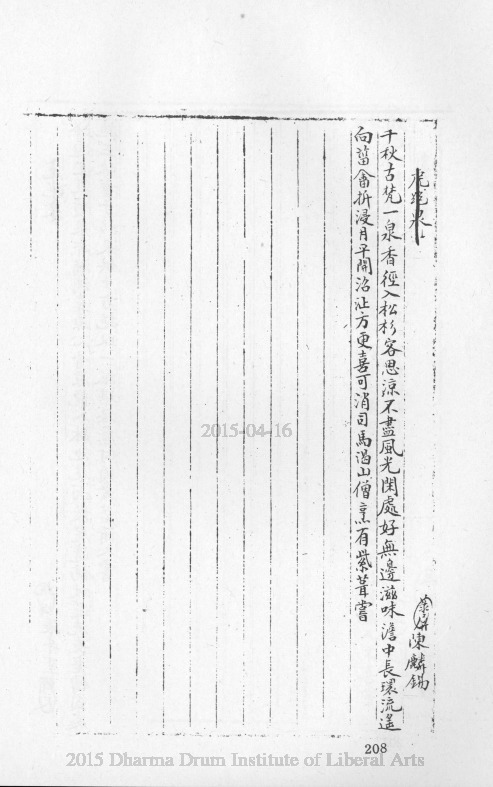 虎跑泉
陳麟錫
千秋古梵一泉香徑入松杉客思涼不盡風光閑處好無邊滋味澹中長環流遥
向菑畬折浸月平開沼沚方更喜可消司馬渴山僧烹有紫茸嘗
2015-04-16
208
2015 Dharma Drum Institute of Liberal Arts